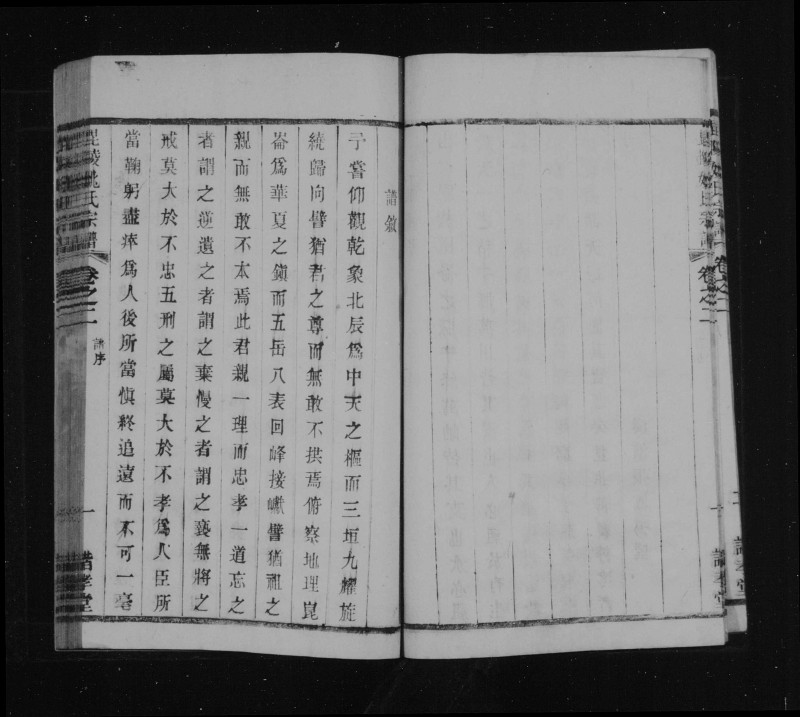 譜敘
予嘗仰觀乾象北辰爲中天之樞而三垣九耀旋
繞歸向譬猶君之尊而無敢不拱焉俯察地理崑
崙爲華夏之鎭而五岳八表回峰接巘譬猶祖之
親而無敢不本焉此君親一理而忠孝一道忘之
者謂之逆遺之者謂之棄慢之者謂之褻無將之
戒莫大於不忠五刑之屬莫大於不孝爲人臣所
當鞠躬盡瘁爲人後所當愼終追遠而不可一毫
毘陵姚氏宗譜
卷之二
譜序
一
卷之二
一